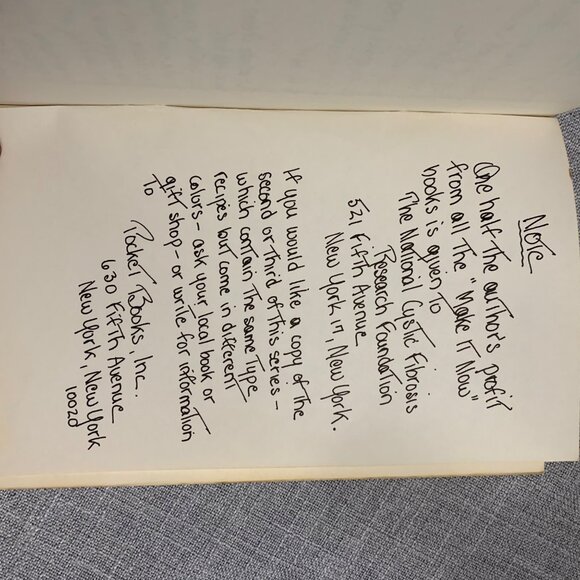 NOTE
One half the author's profit
from all the "Make It Now"
books is given to
The National Cystic Fibrosis
Research Foundation
521 Fifth Avenue
New York 17, New York.
If you would like a copy of the
second or third of this series -
which contain the same type
recipes but come in different
colors - ask your local book or
gift shop - or write for information
to
Pocket Books, Inc.
630 Fifth Avenue
New York, New York
10020